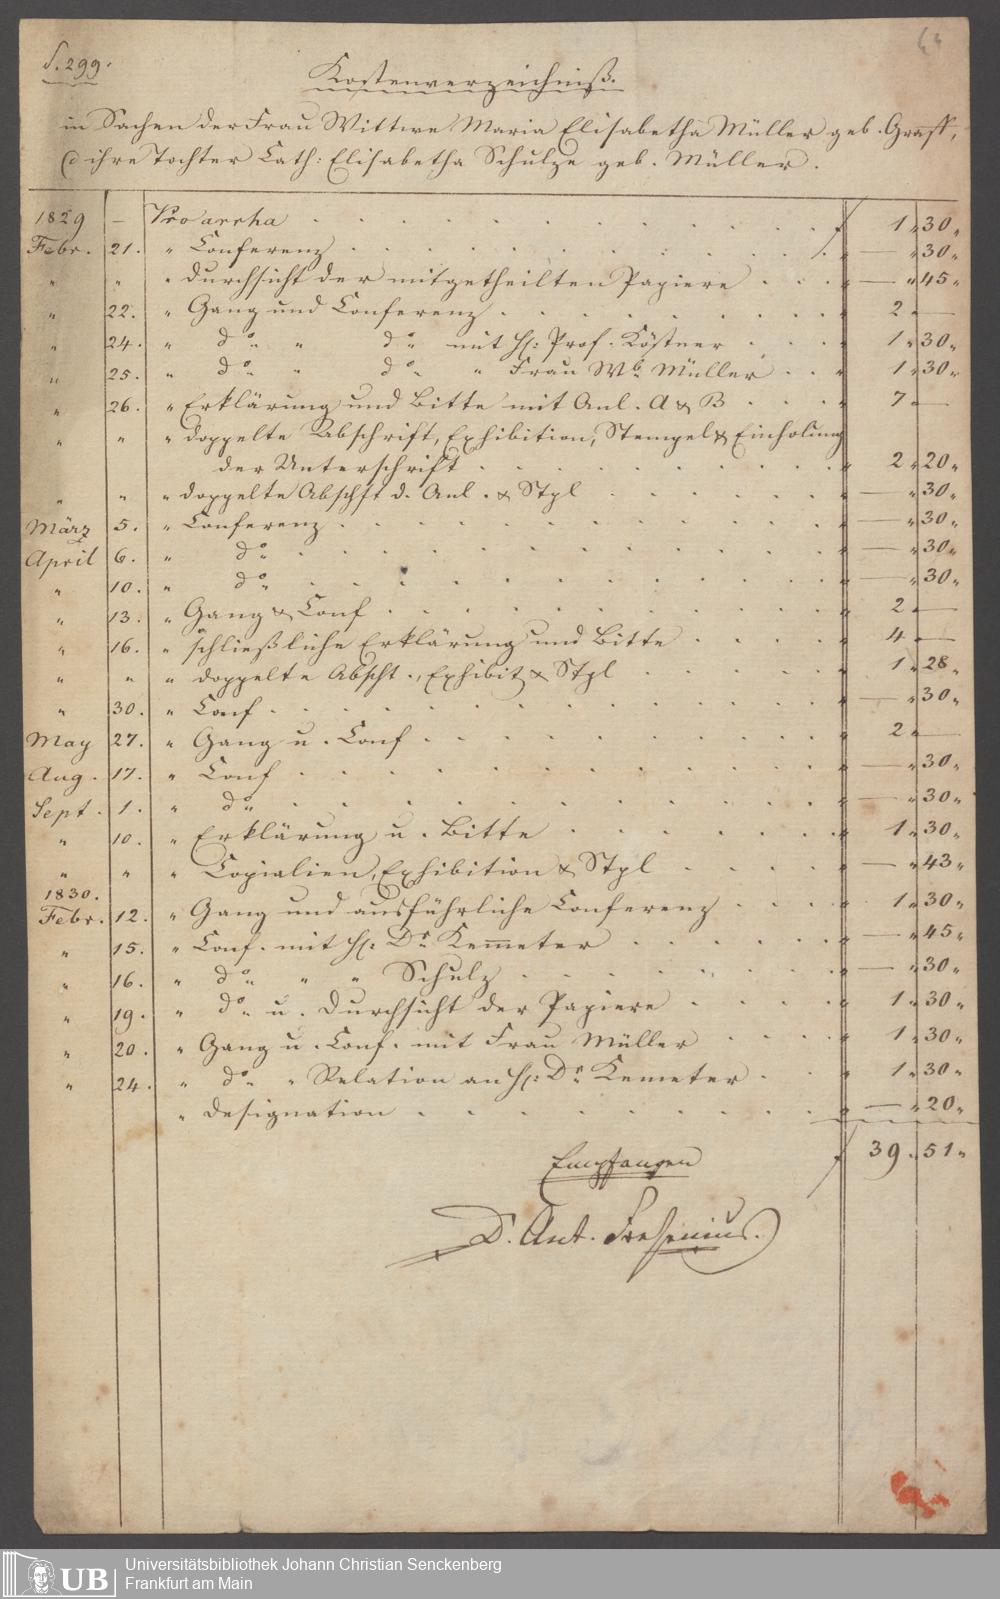 S. 299.
Kostenverzeichniß.
in Sachen der Frau Wittwe Maria Elisabetha Müller geb. Graff,
ihre Tochter Cath: Elisabetha Schulze geb. Müller.
1829 — Pro arrha f 1 „ 30 „
Febr. 21. „ Conferenz „ — „ 30 „
„ „ „ Durchsicht der mitgetheilten Papiere „ — „ 45 „
„ 22. „ Gang und Conferenz „ 2 „ —
„ 24. „ do „ „ do „ mit H: Prof. Köstner „ 1 „ 30 „
„ 25. „ do „ „ do „ „ Frau Wb. Müller „ 1 „ 30 „
„ 26. „ Erklärung und Bitte mit Anl. A & B „ 7 „ —
„ „ „ doppelte Abschrift, Exhibition, Stempel & Einholung
der Unterschrift „ 2 „ 20 „
„ „ „ doppelte Abschft d. Anl. & Stpl „ — „ 30 „
März 5. „ Conferenz „ — „ 30 „
April 6. „ do „ „ — „ 30 „
„ 10. „ do „ „ — „ 30 „
„ 13. „ Gang & Conf „ 2 „ —
„ 16. „ schließliche Erklärung und Bitte „ 4 „ —
„ „ „ doppelte Abscht., Exhibit & Stpl „ 1 „ 28 „
„ 30. „ Conf „ — „ 30 „
May 27. „ Gang u. Conf „ 2 „ —
Aug. 17. „ Conf „ — „ 30 „
Sept. 1. „ do „ „ — „ 30 „
„ 10. „ Erklärung u. Bitte „ 1 „ 30 „
„ „ „ Copialien, Exhibition & Stpl „ — „ 43 „
1830.
Febr. 12. „ Gang und ausführliche Conferenz „ 1 „ 30 „
„ 15. „ Conf. mit H: Dr Kem̅eter „ — „ 45 „
„ 16. „ do „ „ „ Schulz „ — „ 30 „
„ 19. „ do „ u. Durchsicht der Papiere „ 1 „ 30 „
„ 20. „ Gang u. Conf. mit Frau Müller „ 1 „ 30 „
„ 24. „ do „ „ Relation an H: Dr Kemeter „ 1 „ 30 „
„ Designation „ — „ 20 „
f 39 „ 51 „
Empfangen
D. Ant. Fresenius.
UB Universitätsbibliothek Johann Christian Senckenberg
Frankfurt am Main